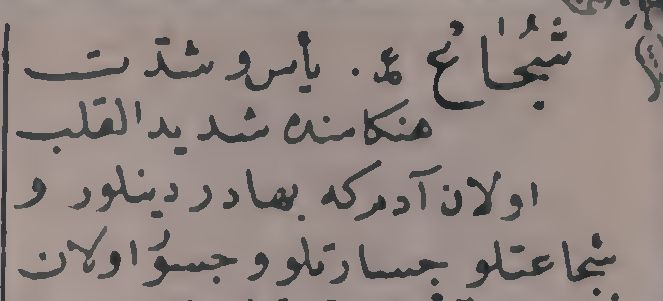 شُجَاعٌ ع. يأس و شدّت
هنكامنده شديد القلب
اولان آدمر كه بهادر دينلور و
شجاعتلو جسارتلو و جسوُر اولان